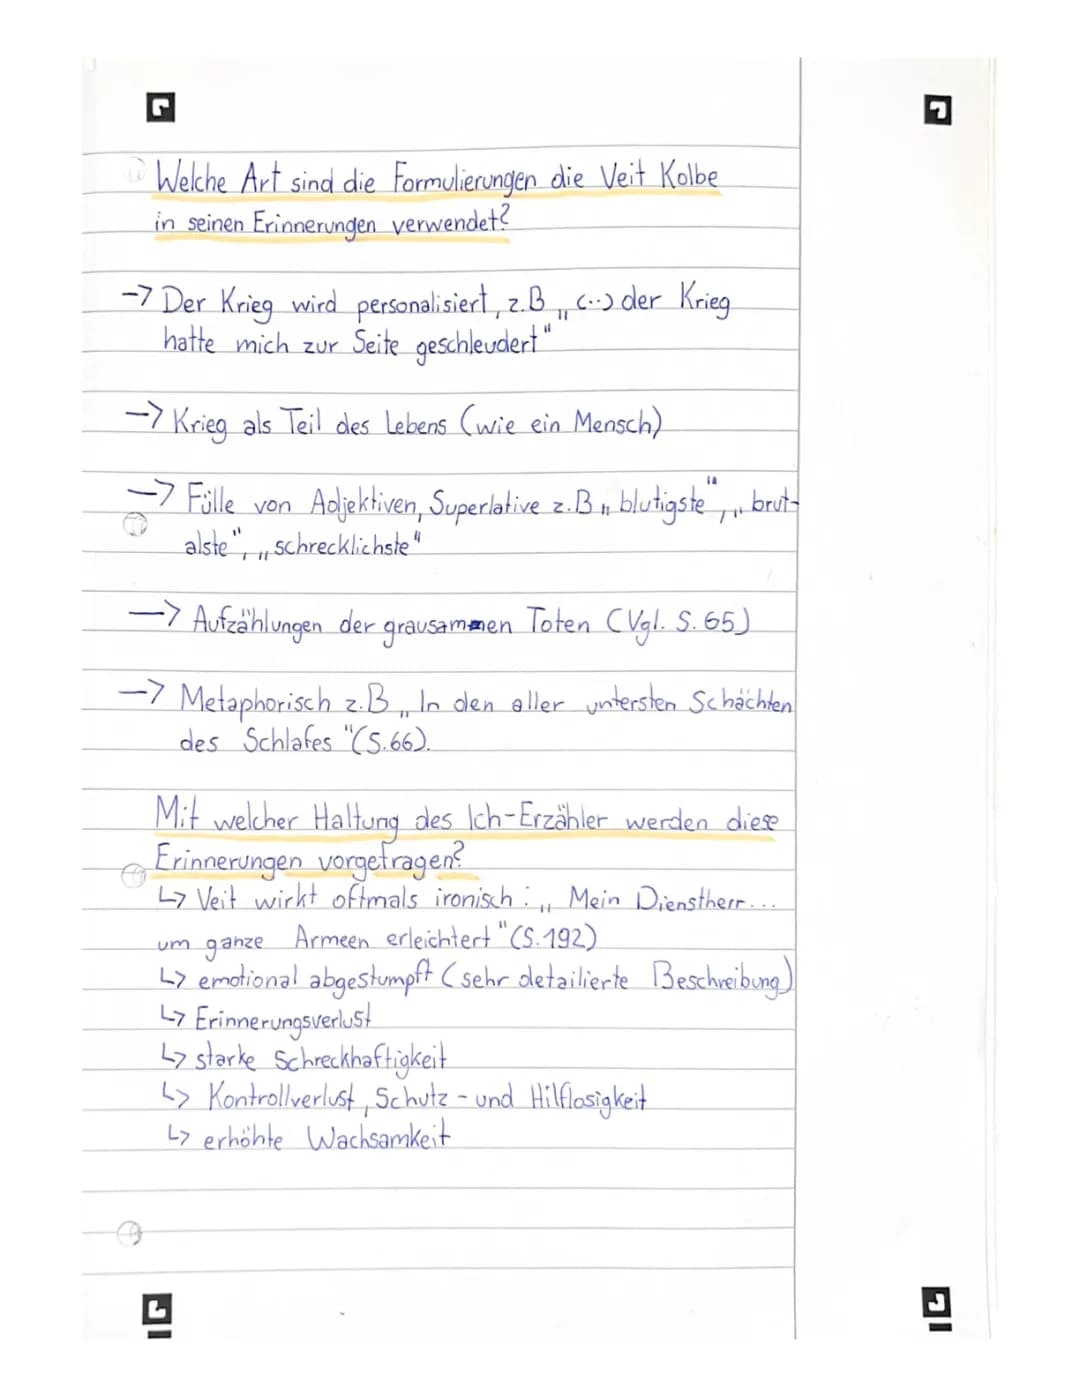 Welche Art sind die Formulierungen die Veit Kolbe
in seinen Erinnerungen verwendet?
-> Der Krieg wird personalisiert, z.B „(..) der Krieg
hatte mich zur Seite geschleudert"
-> Krieg als Teil des Lebens (wie ein Mensch)
-> Fülle von Adjektiven, Superlative z.B „blutigste", „brut-
alste", „schrecklichste"
-> Aufzählungen der grausammen Toten (Vgl. S. 65)
-> Metaphorisch z.B „In den aller untersten Schächten
des Schlafes "(S.66).
Mit welcher Haltung des Ich-Erzähler werden diese
Erinnerungen vorgetragen?
↳ Veit wirkt oftmals ironisch: „Mein Dienstherr...
um ganze Armeen erleichtert"(S.192)
↳ emotional abgestumpft (sehr detailierte Beschreibung)
↳ Erinnerungsverlust
↳ starke Schreckhaftigkeit
↳ Kontrollverlust, Schutz-und Hilflosigkeit
↳ erhöhte Wachsamkeit